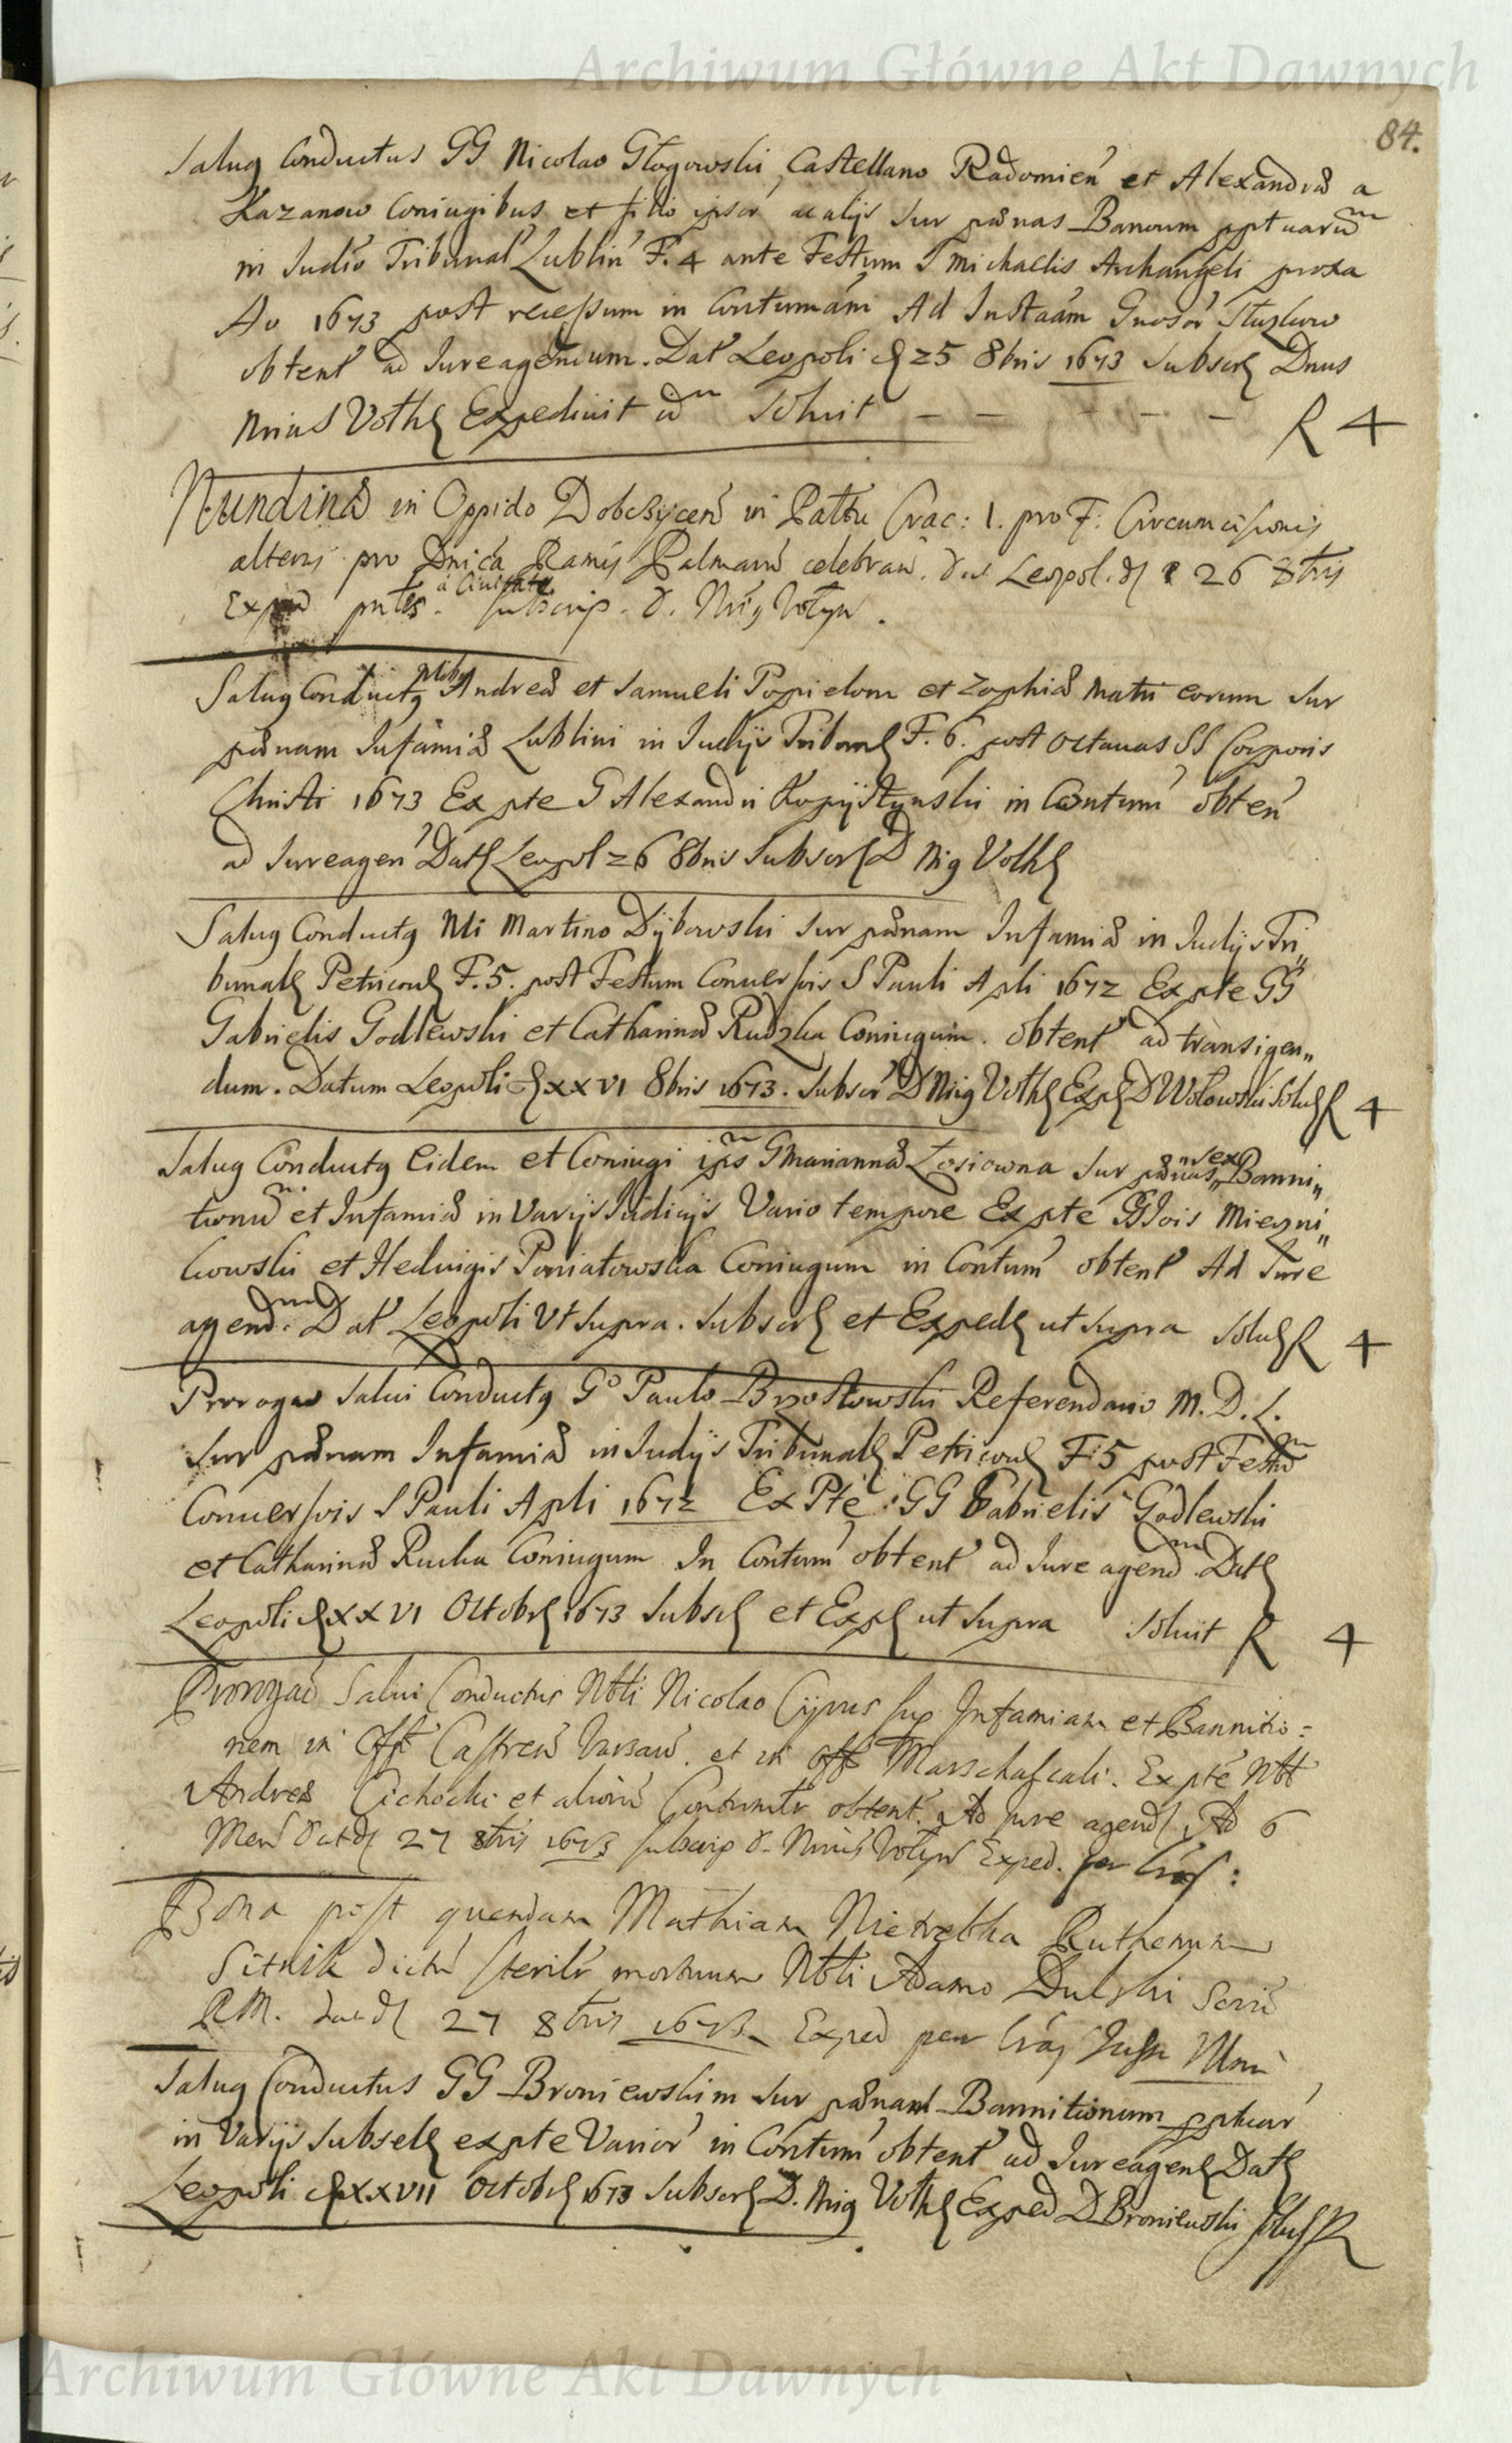 Archiwum Główne Akt Dawnych
84.
Salug Conductus GG Nicolao Głogowski Castellano Radomien et Alexandræ a
Kazanow Coniugibus et filio ipsor ac alijs sur pænas Banoum pptuarum
in Judio Tribunal Lublin F. 4 ante Festum S Michaelis Archangeli proxa
Ao 1673 post recessum in Contumam Ad Instaam Gnosor
obtent ad Jureagendum. Dat Leopoli d 25 8bris 1673 Subscr Dnus
Mius Voth Expedivit idm Solvit – – – – – R 4
Nundinæ in Oppido Dobczycen in Pattu Crac: 1. pro F: Circumcisionis
alteris pro Dnica Ramis Palmarum celebran. Leopol. d 26 8bris
Exped pntes. a Civitate subscrip. D. Mig Vołyn.
Salug Conductg Nbli Andreæ et Samueli Popielom et Zophiæ Matri eorum sur
pænam Infamiæ Lublini in Judijs Tribunal F. 6. post Octauas SS Corporis
Christi 1673 Ex pte G Alexandri Kopijstynski in Contum obten
ad Jureagen Dat Leopol 26 8bris Subscr D Mig Voth
Salug Conductg Nli Martino Dybowski sur pænam Infamiæ in Judijs Tri„
bunal Petricov F. 5. post Festum Conversois S Pauli Apli 1672 Ex pte GG
Gabrielis Godlewski et Catharinæ Rudzka Coniugum. obtent ad transigen„
dum. Datum Leopoli d XXVI 8bris 1673. Subscr D Mig Voth Exp D Wołowski Solu R 4
Salug Conductg Eidem et Coniugi ips G Mariannæ Łosiowna sur pænas „sex„ Banni„
tionum et Infamiæ in Varijs Judicijs Vario tempore Ex pte GG Jois Mierzni„
kowski et Hedvigis Poniatowska Coniugum in Contum obtent Ad Jure
agendum. Dat Leopoli Vt Supra. Subscr et Exped ut Supra Solu R 4
Prorogao Salui Conductg Go Paulo Brzostowski Referendario M. D. L.
sur pænam Infamiæ in Judijs Tribunal Petricov F 5 post Festum
Conversois S Pauli Apli 1672 Ex Pte GG Gabrielis Godlewski
et Catharinæ Rucka Coniugum In Contum obtent ad Jure agendm Dat
Leopoli d XXVI Octobr 1673 Subsc et Exp ut Supra Soluit R 4
Prorogao Salui Conductus Nbli Nicolao Cyprus sup Infamiam et Bannitio=
nem in Off Castren Varsav. et in Off Marschalcali. Ex pte Nbl
Andreæ Cichocki et alior Contumtr obtent. Ad Jure agend Ad 6
Men Dat d 27 8bris 1673 subscrip D. Mius Vołyn Exped. per
Bona post quendam Mathiam Nietrebka Ruthenum
Sitnik dictu sterilr mortuum Nbli Adamo Dulski
R.M. Dat d 27 8bris 1673 Exped per
Salug Conductus GG Broniewskim sur pænam Bannitionum pptuar
in Varijs Subsel ex pte Varior in Contum obtent ad Jureagen Dat
Leopoli d XXVII Octob 1673 Subscr D. Mig Voth Exped D Broniewski Solu R
Archiwum Główne Akt Dawnych